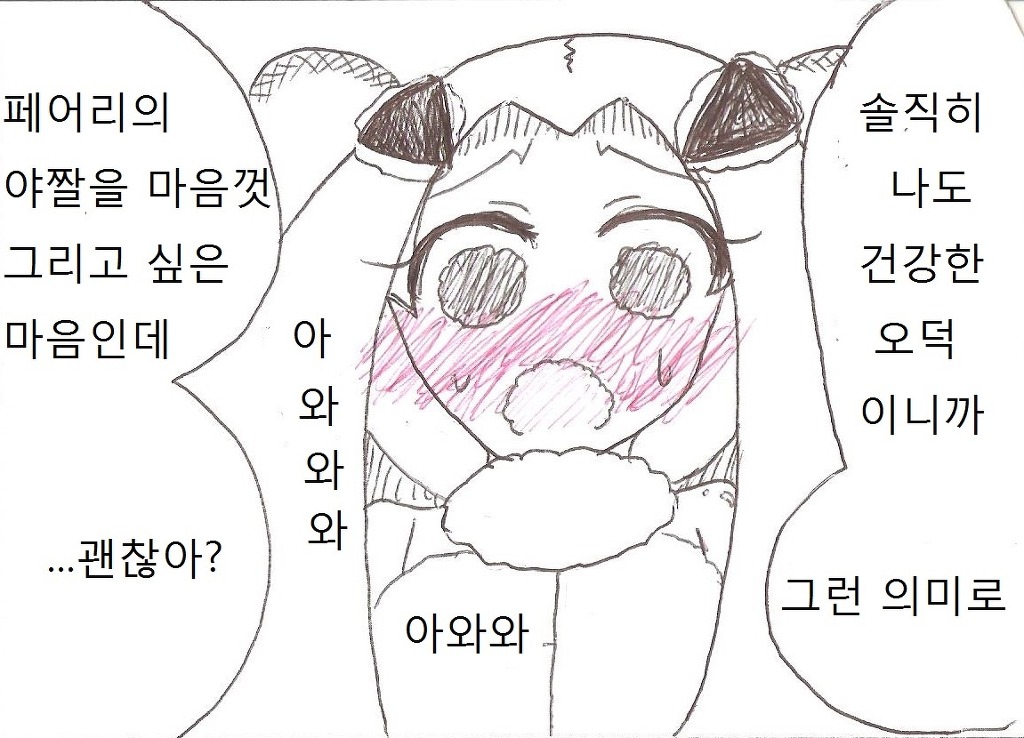 솔직히
나도
건강한
오덕
이니까
그런 의미로
페어리의
야짤을 마음껏
그리고 싶은
마음인데
...괜찮아?
아
와
와
와
아와와